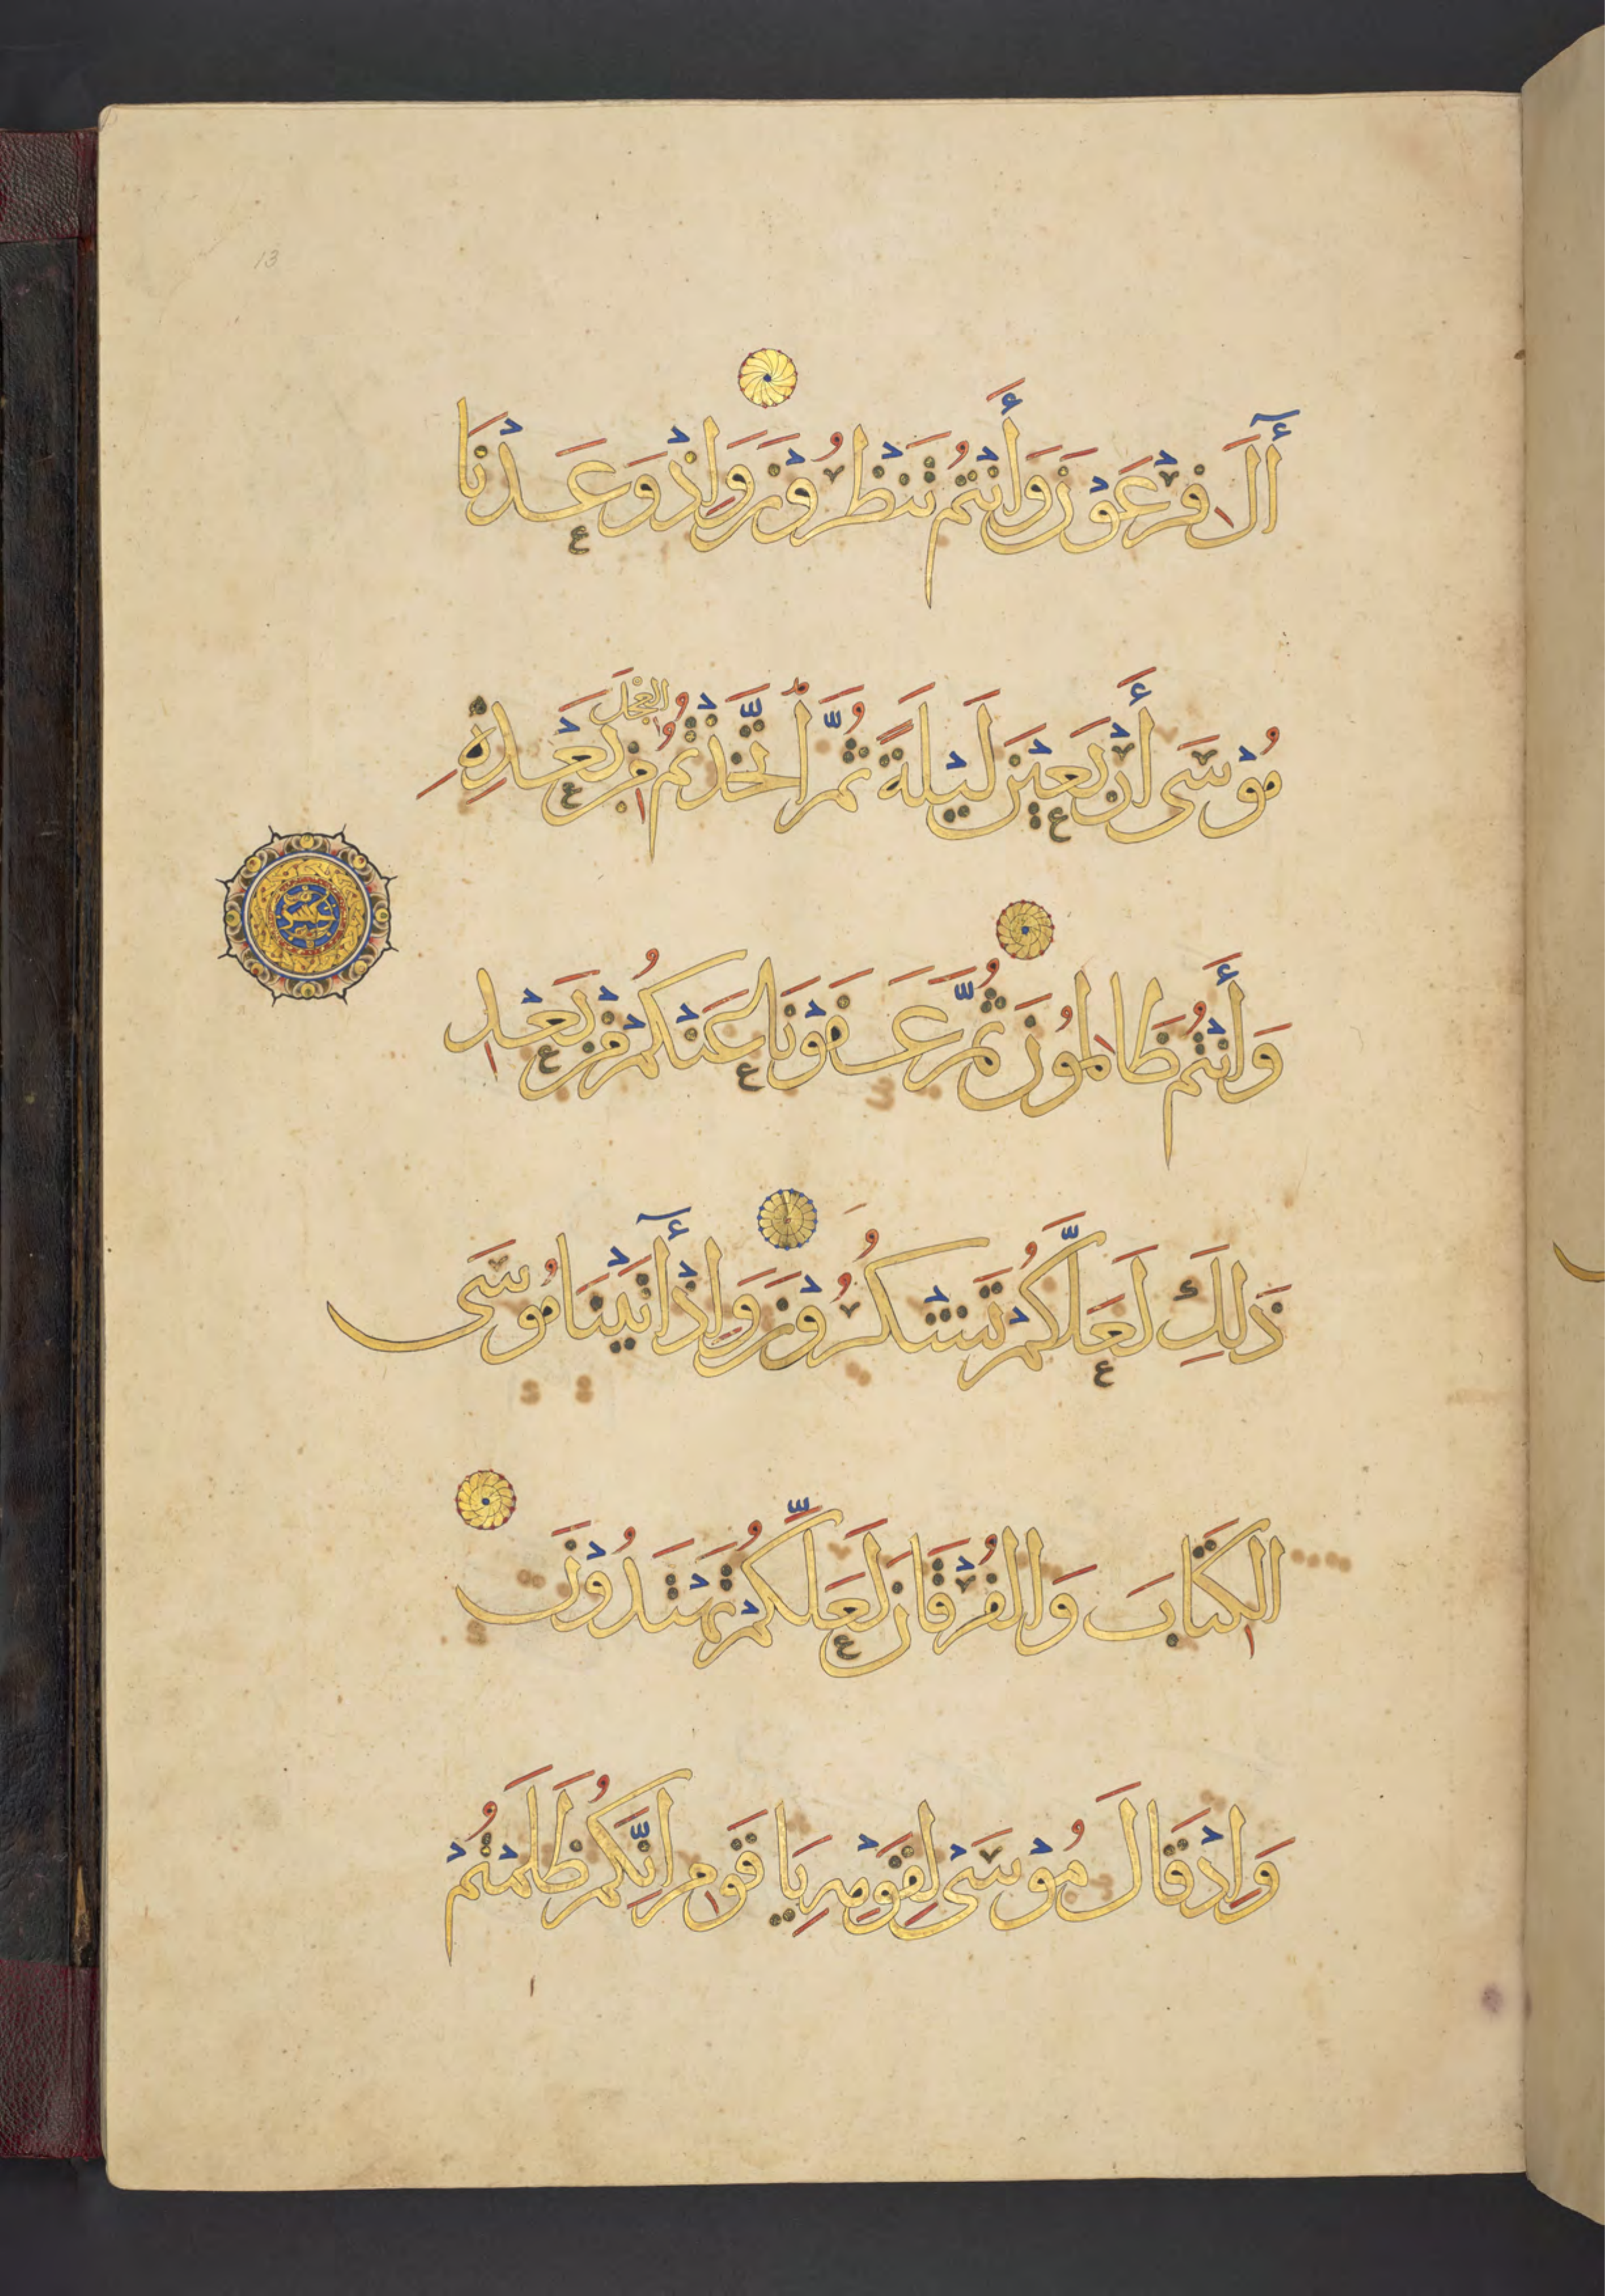 13
آلَ فِرْعَوْنَ وَأَنْتُمْ تَنْظُرُوْنَ وَإِذْ وَعَدْنَا
مُوْسَى أَرْبَعِيْنَ لَيْلَةً ثُمَّ اتَّخَذْتُمُ الْعِجْلَ مِنْ بَعْدِهِ
وَأَنْتُمْ ظَالِمُونَ ثُمَّ عَفَوْنَا عَنْكُمْ مِنْ بَعْدِ
ذَلِكَ لَعَلَّكُمْ تَشْكُرُوْنَ وَإِذْ آتَيْنَا مُوسَى
الكِتَابَ وَالفُرْقَانَ لَعَلَّكُمْ تَهْتَدُوْنَ
وَإِذْ قَالَ مُوْسَىْ لِقَوْمِهِ يَا قَوْمِ إِنَّكُمْ ظَلَمْتُمْ